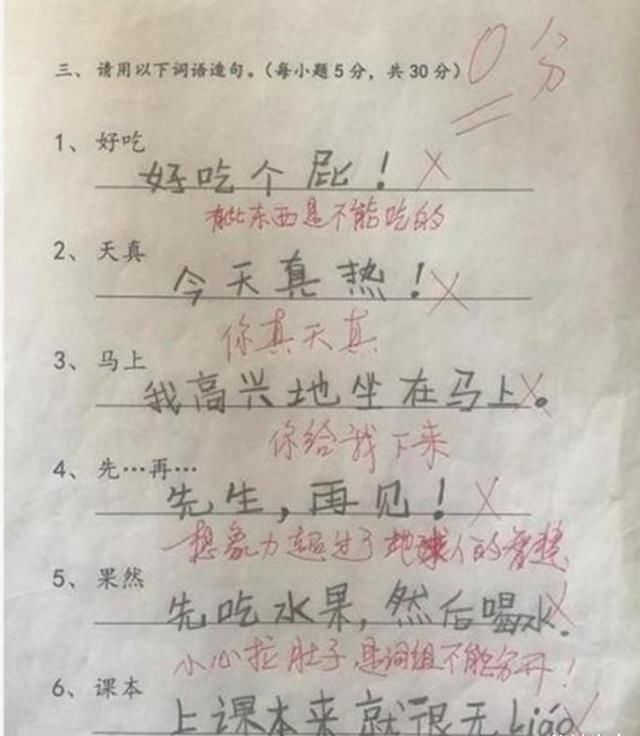 三、请用以下词语造句。(每小题5分，共30分) 0分
1、好吃
好吃个屁！×
有些东西是不能吃的
2、天真
今天真热！×
你真天真
3、马上
我高兴地坐在马上。×
你给我下来
4、先…再…
先生，再见！×
想象力超过了地球人的智慧
5、果然
先吃水果，然后喝水。×
小心拉肚子，是词组不能分开！
6、课本
上课本来就很无liáo×